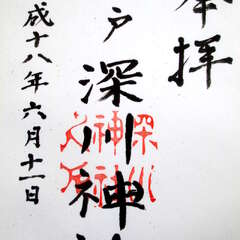 奉拝
戸 深川神社
成十八年六月十一日